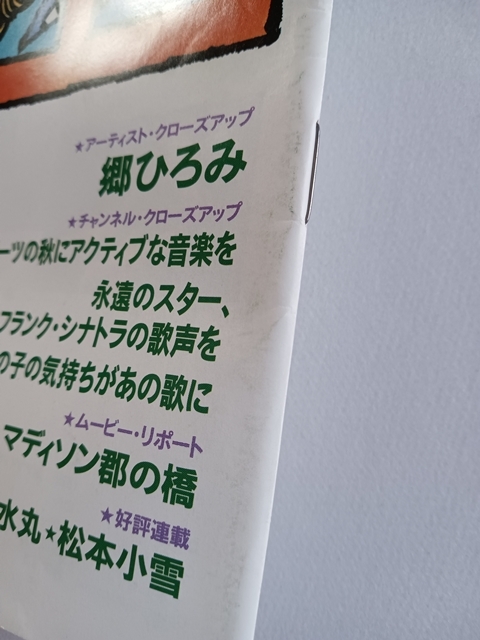 ★アーティスト・クローズアップ
郷ひろみ
★チャンネル・クローズアップ
ーツの秋にアクティブな音楽を
永遠のスター、
フランク・シナトラの歌声を
の子の気持ちがあの歌に
★ムービー・リポート
マディソン郡の橋
★好評連載
水丸★松本小雪